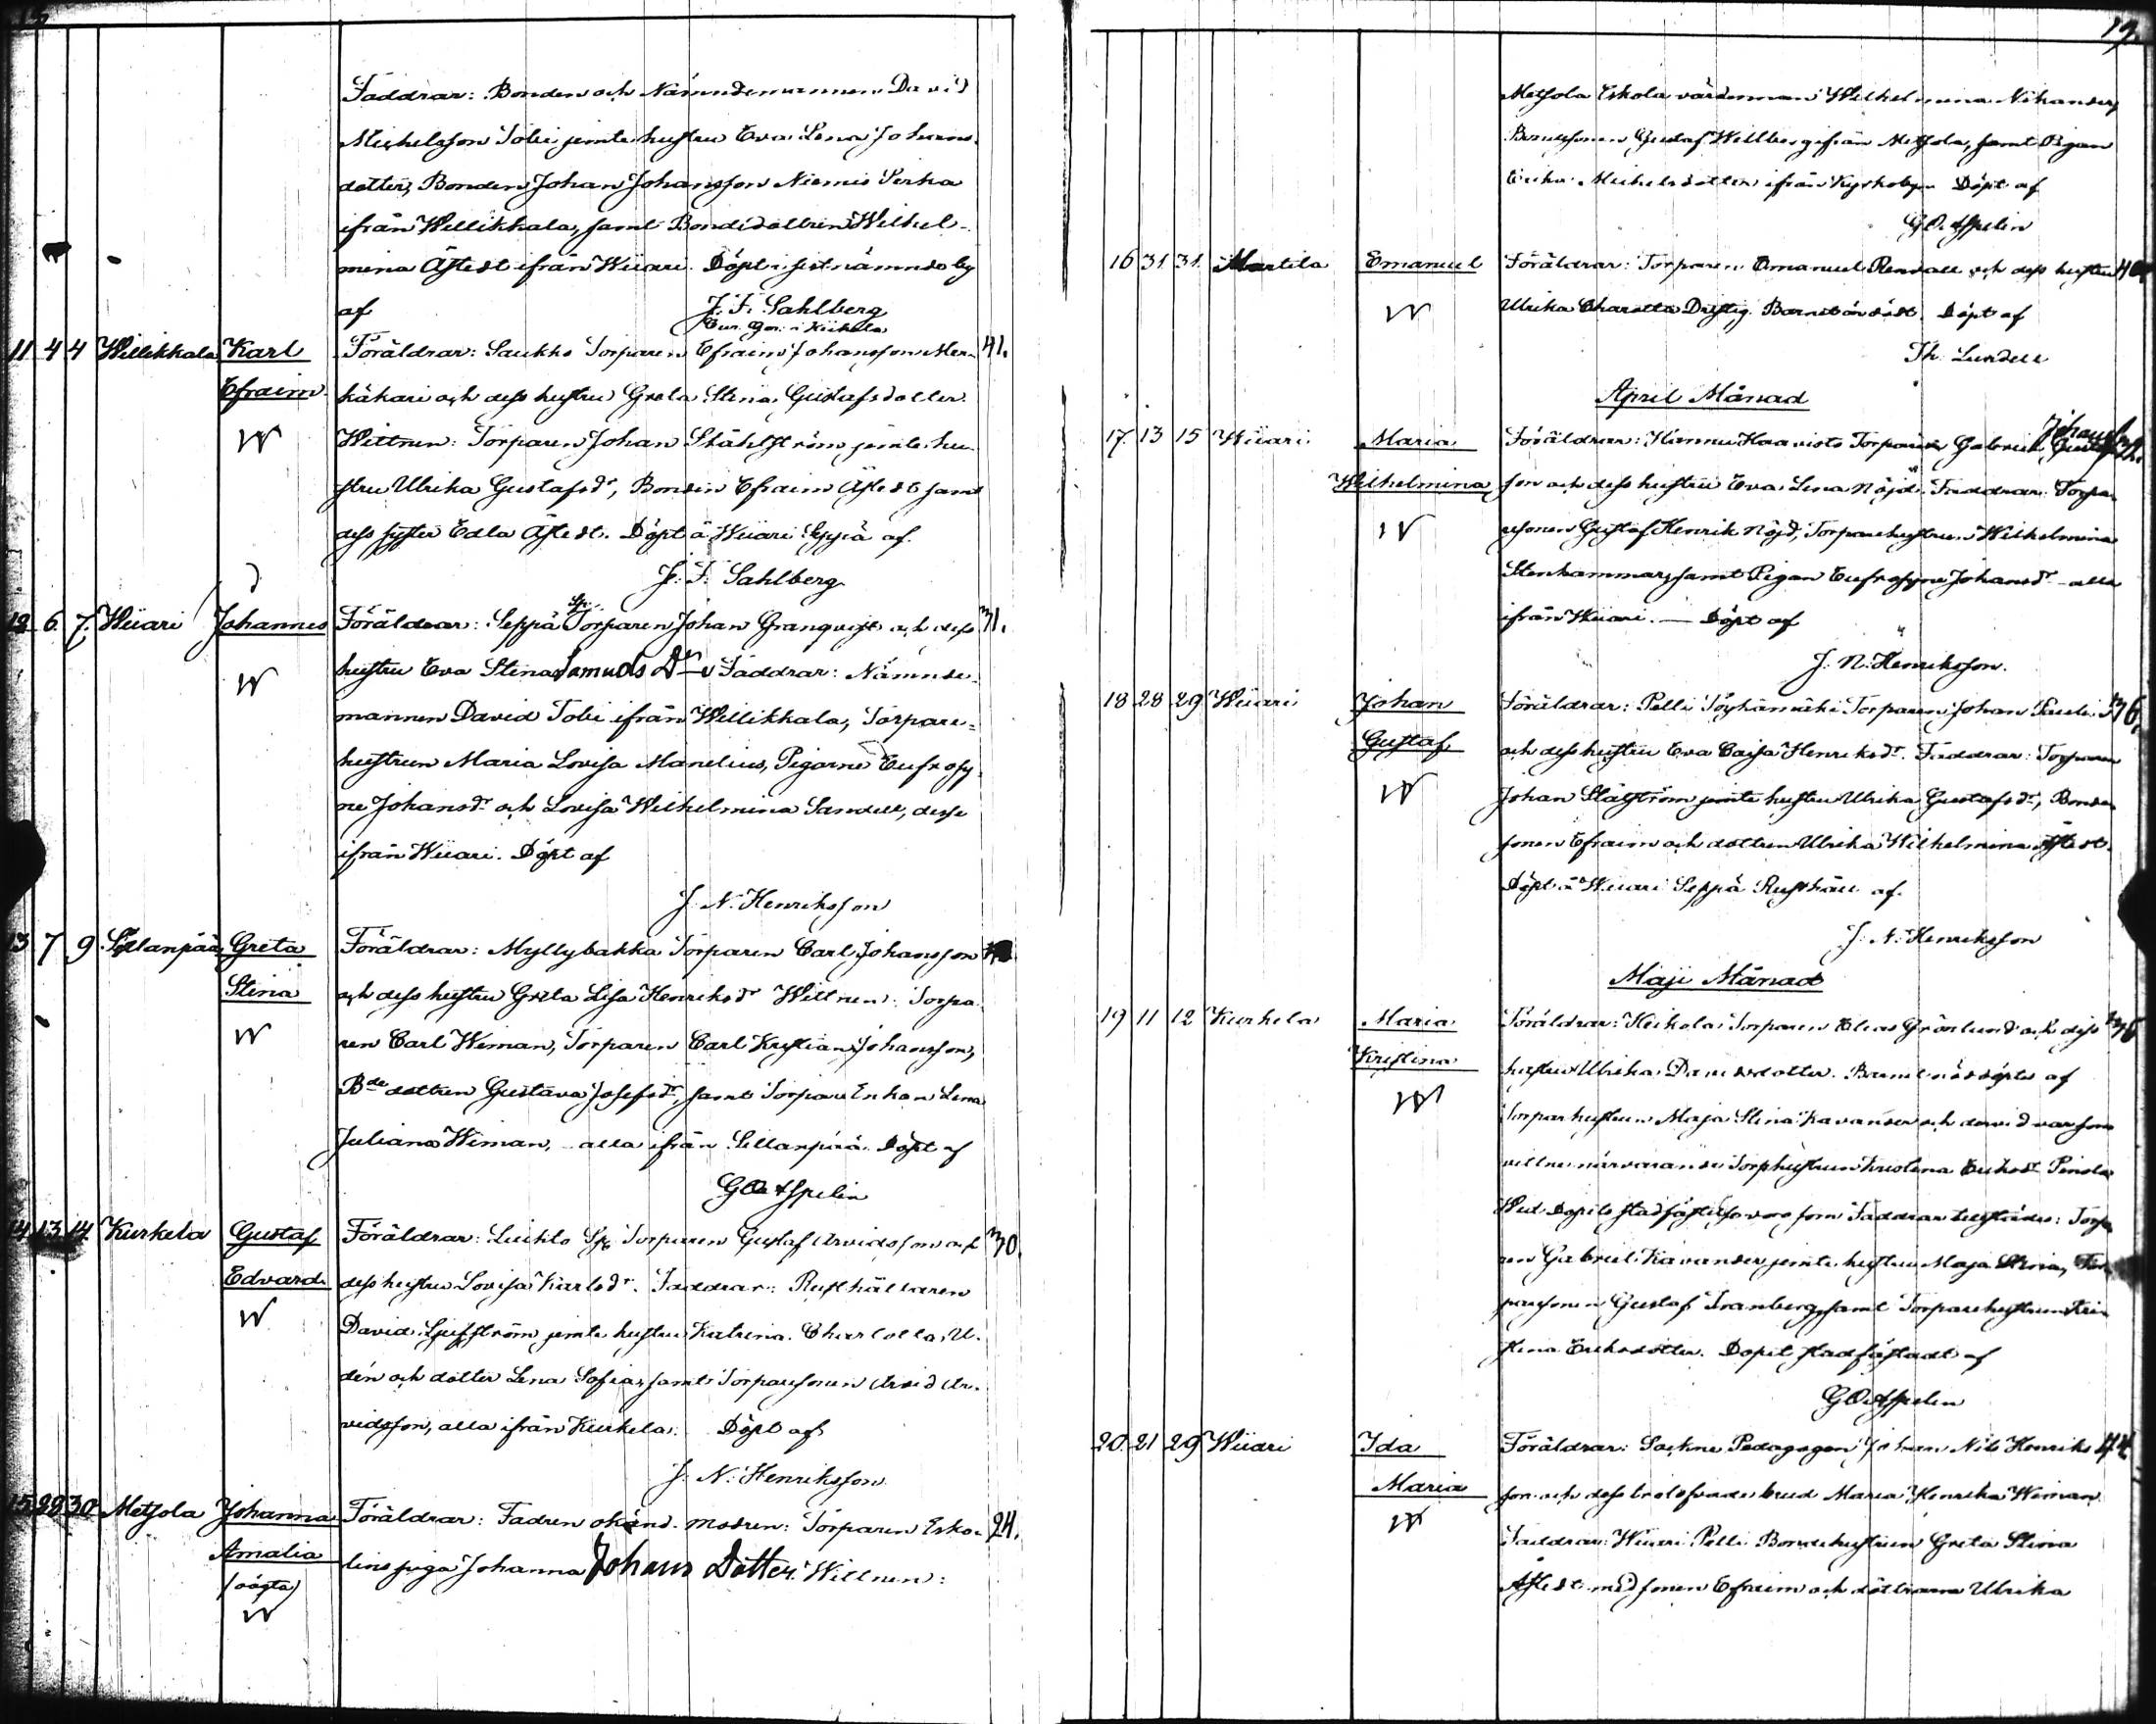 Faddrar: Bonden och Nämndemannen David
Michelsson Tobi jemte hustru Eva Lena Johans-
dotter, Bonden Johan Johansson Niemis Perka
ifrån Willikkala, samt Bondedottren Wilhel-
mina Äftedt ifrån Wiiari. Döpt i sistnämnde by
af J. F. Sahlberg
11 4 4 Willikkala Karl Föräldrar: Saukko Torparen Efraim Johansson Mer- 41.
Efraim käkari och dess hustru Greta Stina Gustafsdotter.
W Wittnen: Torparen Johan Ståhlström jemte hu-
stru Ulrika Gustafsdr, Bonden Efraim Äftedt samt
dess syster Edla Äftedt. Döpt å Wiiari Seppä af
J. F. Sahlberg
12 6. 7. Wiiari Johannes Föräldrar: Seppä Sp. Torparen Johan Granqvist och dess 31.
W hustru Eva Stina Samuels Dr Faddrar: Nämnde-
mannen David Tobi ifrån Willikkala, Torpare-
hustrun Maria Lovisa Manelius, Pigorne Eufrosy-
ne Johansdr och Lovisa Wilhelmina Sandell, desse
ifrån Wiiari. Döpt af
J. N. Henriksson
13 7 9. Sillanpää Greta Föräldrar: Myllybakka Torparen Carl Johansson
Stina och dess hustru Greta Lisa Henriksdr Wittnen: Torpa-
W ren Carl Wiman, Torparen Carl Kristian Johansson,
Bde dottren Gustava Josefsdr, samt Torpare Enkan Lena
Juliana Wiman, alla ifrån Sillanpää. Döpt af
G O Aspelin
14 13 14. Kurkela Gustaf Föräldrar: Luikko Sp. Torparen Gustaf Arvidsson och 30.
Edvard dess hustru Lovisa Karlsdr. Faddrar: Rusthållaren
W David Sjöström jemte hustru Katrina Charlotta U-
dén och dotter Lena Sofia, samt Torparesonen Arvid Ar-
vidsson, alla ifrån Kurkela. Döpt af
J. N. Henriksson
15 28 30 Metsola Johanna Föräldrar: Fadren okänd. modren: Torparen Esko- 24.
Amalia lins piga Johanna Johans Dotter. Wittnen:
(oägta)
W
19.
Metsola Eskola värdinnan Wilhelmina Nikander,
Bondesonen Gustaf Willberg ifrån Metsola, samt Pigan
Erika Michelsdotter ifrån Kyrkobyn Döpt af
G O. Aspelin
16 31 31 Martila Emanuel Föräldrar: Torparen Emanuel Rendall och dess hustru
W Ulrika Charotta Dristig. Döpt af
Th. Lundell
April Månad
17. 13 15 Wiiari Maria Föräldrar: Hannu Haavisto Torparen Gabriel Johans
Wilhelmina son och dess hustru Eva Lena Nöjd. Faddrar: Torpa-
W resonen Gustaf Henrik Nöjd, Torparehustrun Wilhelmina
Stenhammar, samt Pigan Eufrosyne Johansdr alla
ifrån Wiiari. — Döpt af
J. N. Henriksson.
18 28 29 Wiiari Johan Föräldrar: Pelli Torparen Johan
Gustaf och dess hustru Eva Caisa Henriksdr. Faddrar: Torparen
W Johan Ståhlström jemte hustru Ulrika Gustafsdr, Bonde-
sonen Efraim och dottren Ulrika Wilhelmina Äftedt.
Döpt å Wiiari Seppä Rusthåll af
J. N. Henriksson
Maji Månad
19 11 12 Kurkela Maria Föräldrar: Heikola Torparen Elias Grönlund och dess
Kristina hustru Ulrika Davidsdotter. Barnet nöddöptes af
W Torparhustrun Maja Stina Kavander och dervid var som
vittne närvarande Torphustrun Kristina Eriksdr
Wid Dopets stadfästelse voro som Faddrar tillstädes: Torpa-
ren Gabriel Kavander jemte hustru Maja Stina, Tor-
paresonen Gustaf Tranberg, samt Torparehustrun Kri-
stina Eriksdotter. Dopet stadfästadt af
G O Aspelin
20 21 29 Wiiari Ida Föräldrar: Sockne Pedagogen Johan Nils Henriks- 44
Maria son och dess trolofvade brud Maria Henrika Wiman
W Faddrar: Wiiari Pelli Bondehustrun Greta Stina
Äftedt med sonen Efraim och döttrarna Ulrika